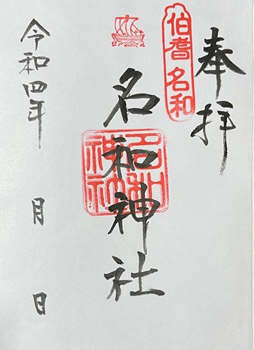 奉拝
伯耆名和
名和神社
名和神社
令和四年 月 日